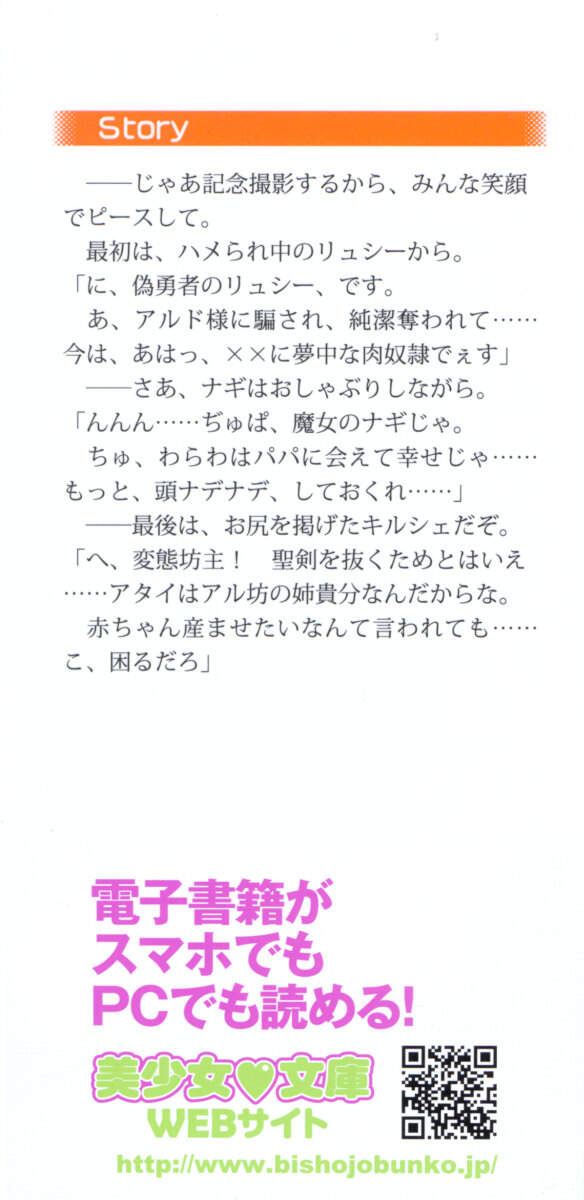 Story
――じゃあ記念撮影するから、みんな笑顔
でピースして。
最初は、ハメられ中のリュシーから。
「に、偽勇者のリュシー、です。
あ、アルド様に騙され、純潔奪われて……
今は、あはっ、××に夢中な肉奴隷でぇす」
――さあ、ナギはおしゃぶりしながら。
「んんん……ぢゅぱ、魔女のナギじゃ。
ちゅ、わらわはパパに会えて幸せじゃ……
もっと、頭ナデナデ、しておくれ……」
――最後は、お尻を掲げたキルシェだぞ。
「へ、変態坊主！　聖剣を抜くためとはいえ
……アタイはアル坊の姉貴分なんだからな。
赤ちゃん産ませたいなんて言われても……
こ、困るだろ」
電子書籍が
スマホでも
PCでも読める!
美少女♥文庫
WEBサイト
http://www.bishojobunko.jp/